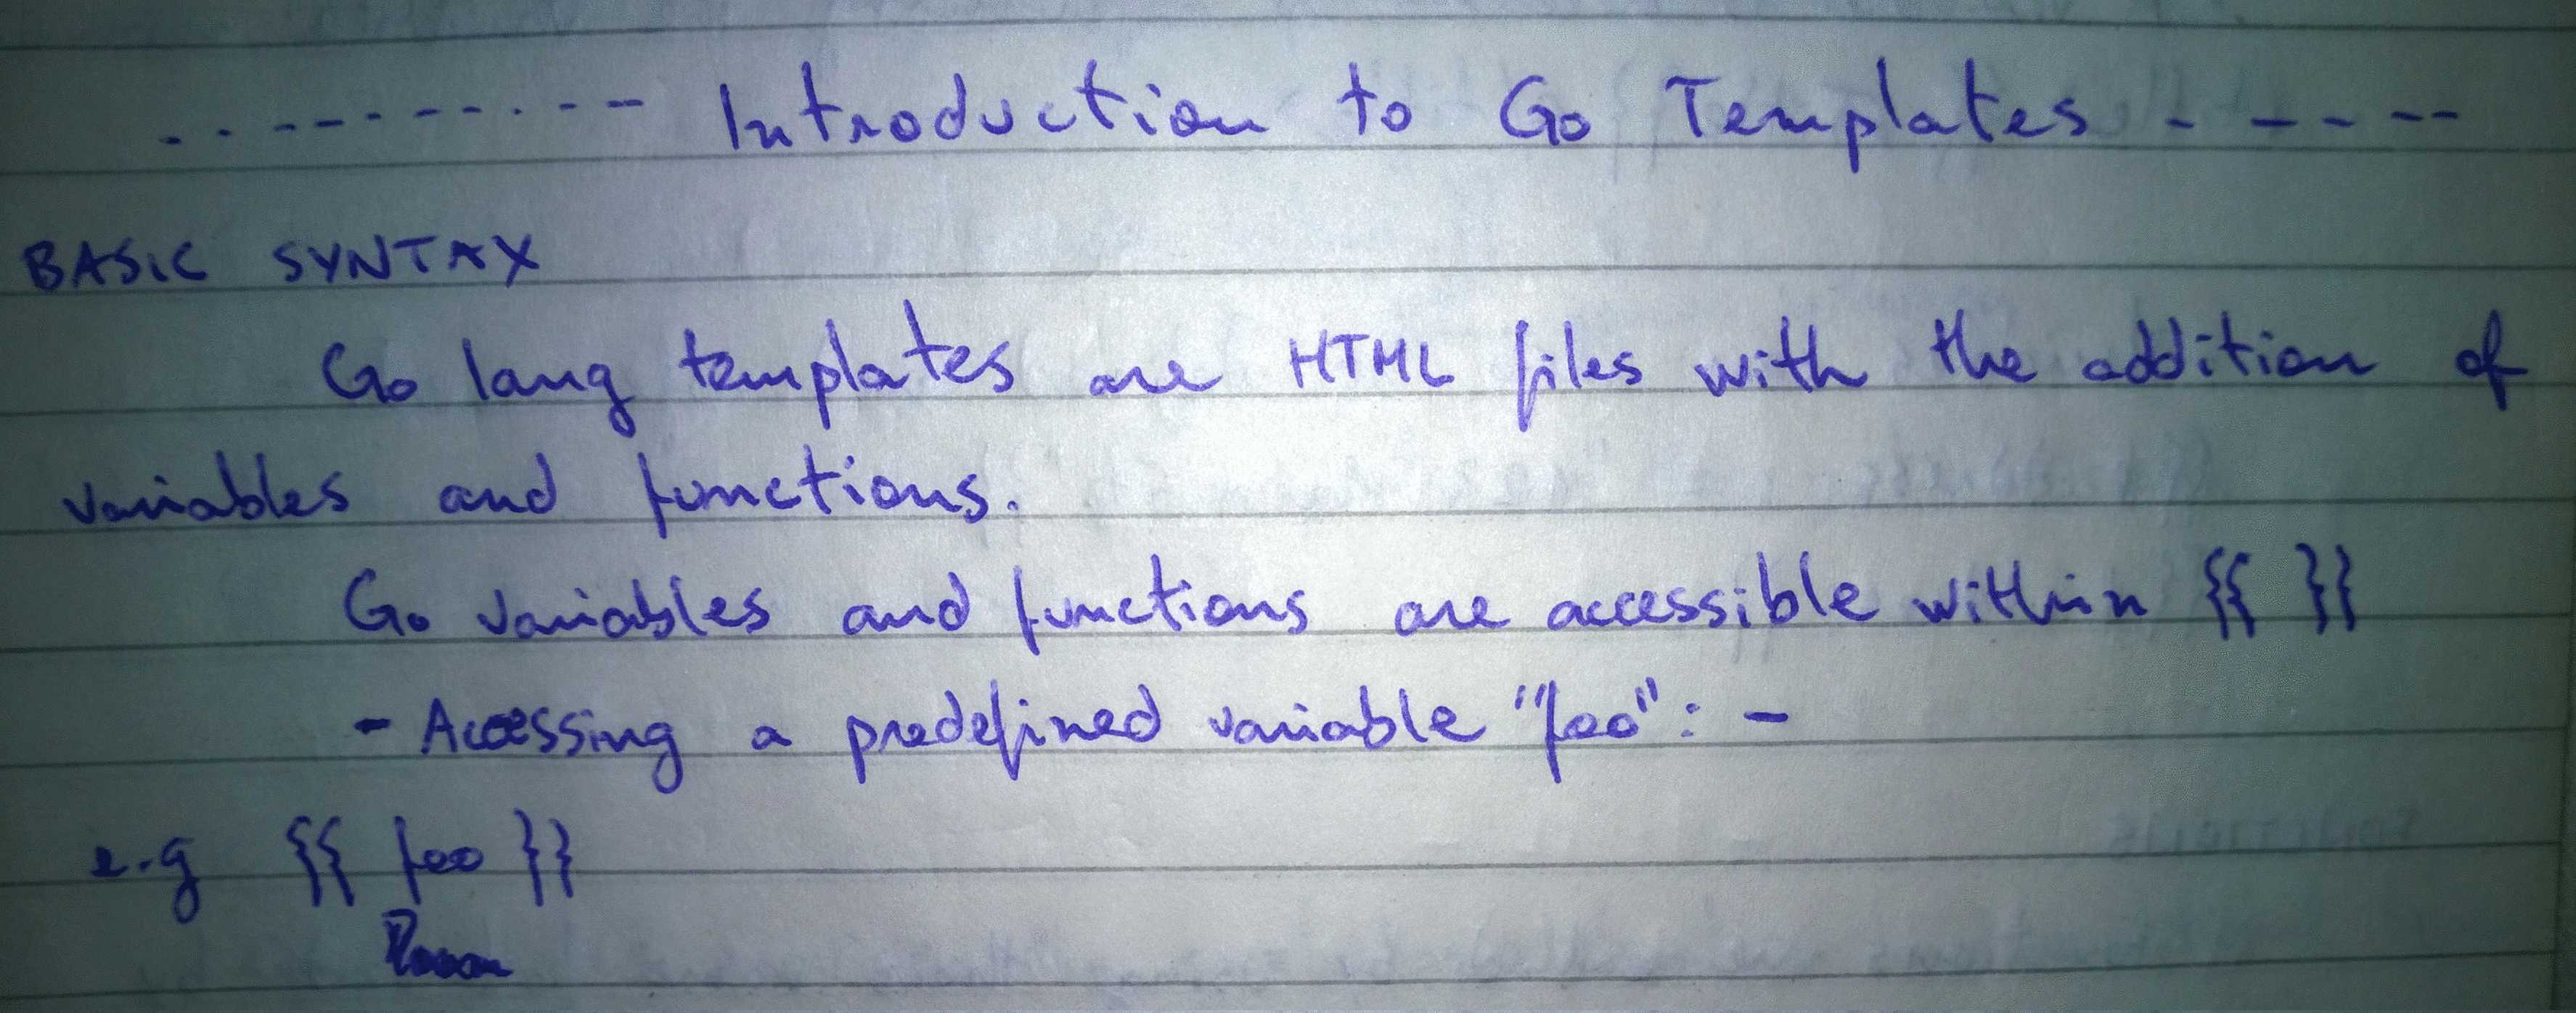 . . - - - - - - - - Introduction to Go Templates - - - - -
BASIC SYNTAX
Go lang templates are HTML files with the addition of
variables and functions.
Go variables and functions are accessible within {{ }}
- Accessing a predefined variable "foo": -
e.g {{ foo }}